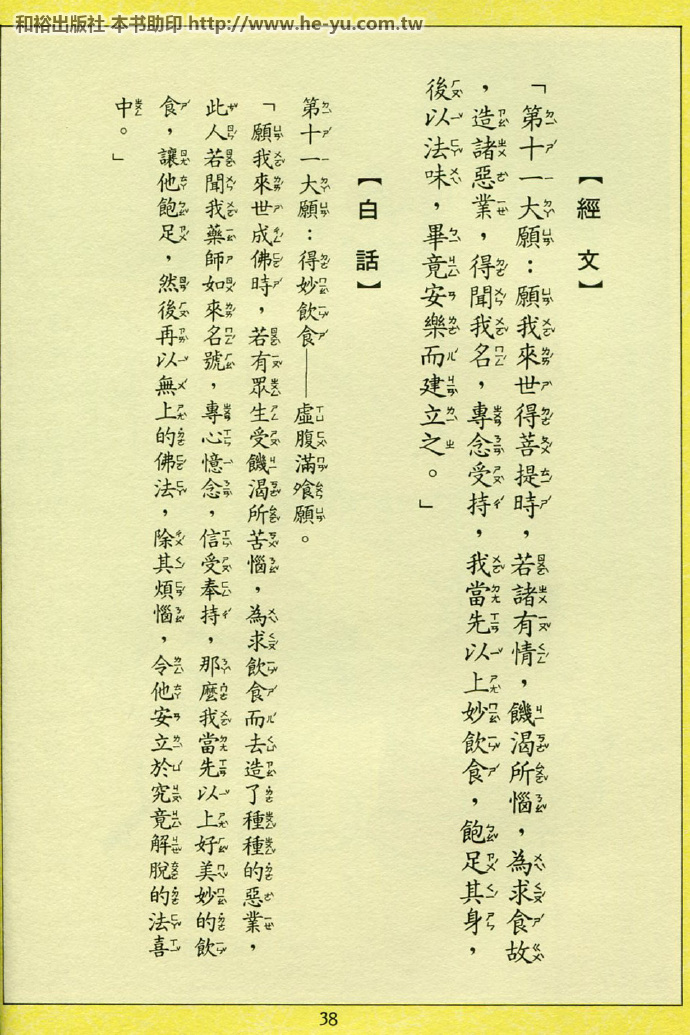 和裕出版社 本书助印 http://www.he-yu.com.tw
【經文】
「第十一大願：願我來世得菩提時，若諸有情，饑渴所惱，為求食故
，造諸惡業，得聞我名，專念受持，我當先以上妙飲食，飽足其身，
後以法味，畢竟安樂而建立之。」
【白話】
第十一大願：得妙飲食——虛腹滿飧願。
「願我來世成佛時，若有眾生受饑渴所苦惱，為求飲食而去造了種種的惡業，
此人若聞我藥師如來名號，專心憶念，信受奉持，那麼我當先以上好美妙的飲
食，讓他飽足，然後再以無上的佛法，除其煩惱，令他安立於究竟解脫的法喜
中。」
38